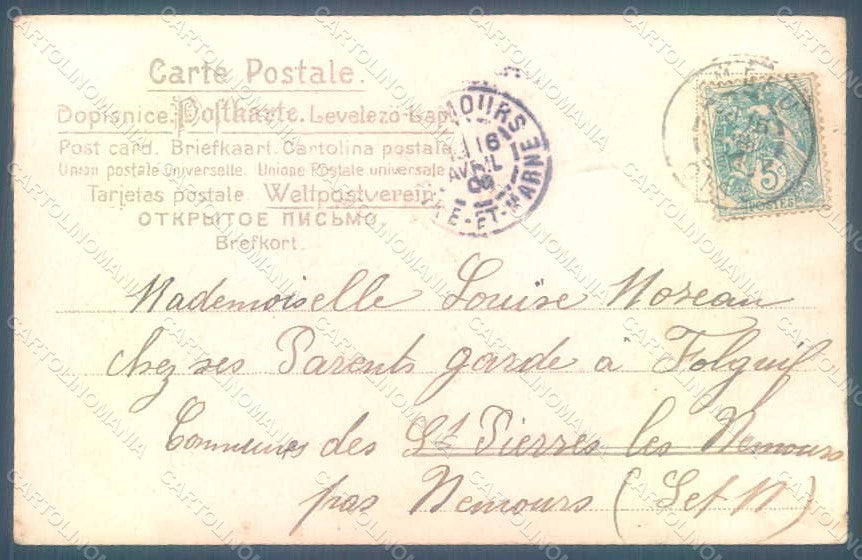 Carte Postale.
Dopisnice. Postkarte. Levelező-Lap.
Post card. Briefkaart. Cartolina postale.
Union postale universelle. Unione Postale universale
Tarjetas postale. Weltpostverein.
ОТКРЫТОЕ ПИСЬМО.
Brefkort.
MOURS
16
AVRIL
06
E-ET-MARNE
5c
POSTES
Mademoiselle Louise Moreau
chez ses Parents garde à Folgeuil
Communes des St Pierres les Nemours
par Nemours (S et M)
CARTOLINOMANIA